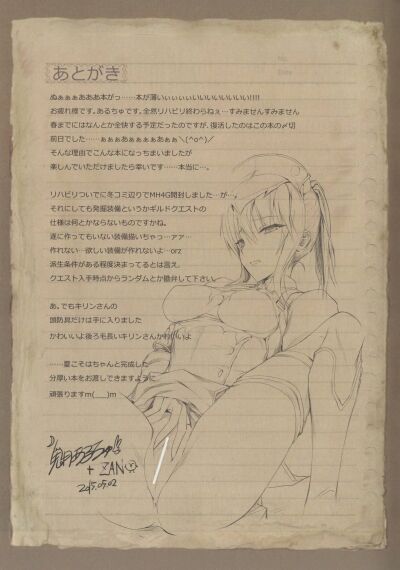 あとがき
ぬぁぁぁあああ本がっ……本が薄いぃぃぃぃいいいいいいいい!!!!
お疲れ様です。あるちゅです。全然リハビリ終わらねぇ…すみませんすみません
春までにはなんとか全快する予定だったのですが、復活したのはこの本の〆切
前日でした……ぁぁぁあぁぁぁぁあぁぁ＼(^o^)／
そんな理由でこんな本になっちまいましたが
楽しんでいただけましたら幸いです……本当に…。
リハビリついでに冬コミ辺りでMH4G開封しました…が…。
それにしても発掘装備というかギルドクエストの
仕様は何とかならないものですかね。
遂に作ってもいない装備描いちゃっ…ァァ…
作れない…欲しい装備が作れないよ…orz
派生条件がある程度決まってるとは言え、
クエスト入手時点からランダムとか勘弁して下さい。
あ。でもキリンさんの
頭防具だけは手に入りました
かわいいよ後ろ毛長いキリンさんかわいいよ
……夏こそはちゃんと完成した
分厚い本をお渡しできますように
頑張りますm(__)m
+ ZAN
2015.05.02